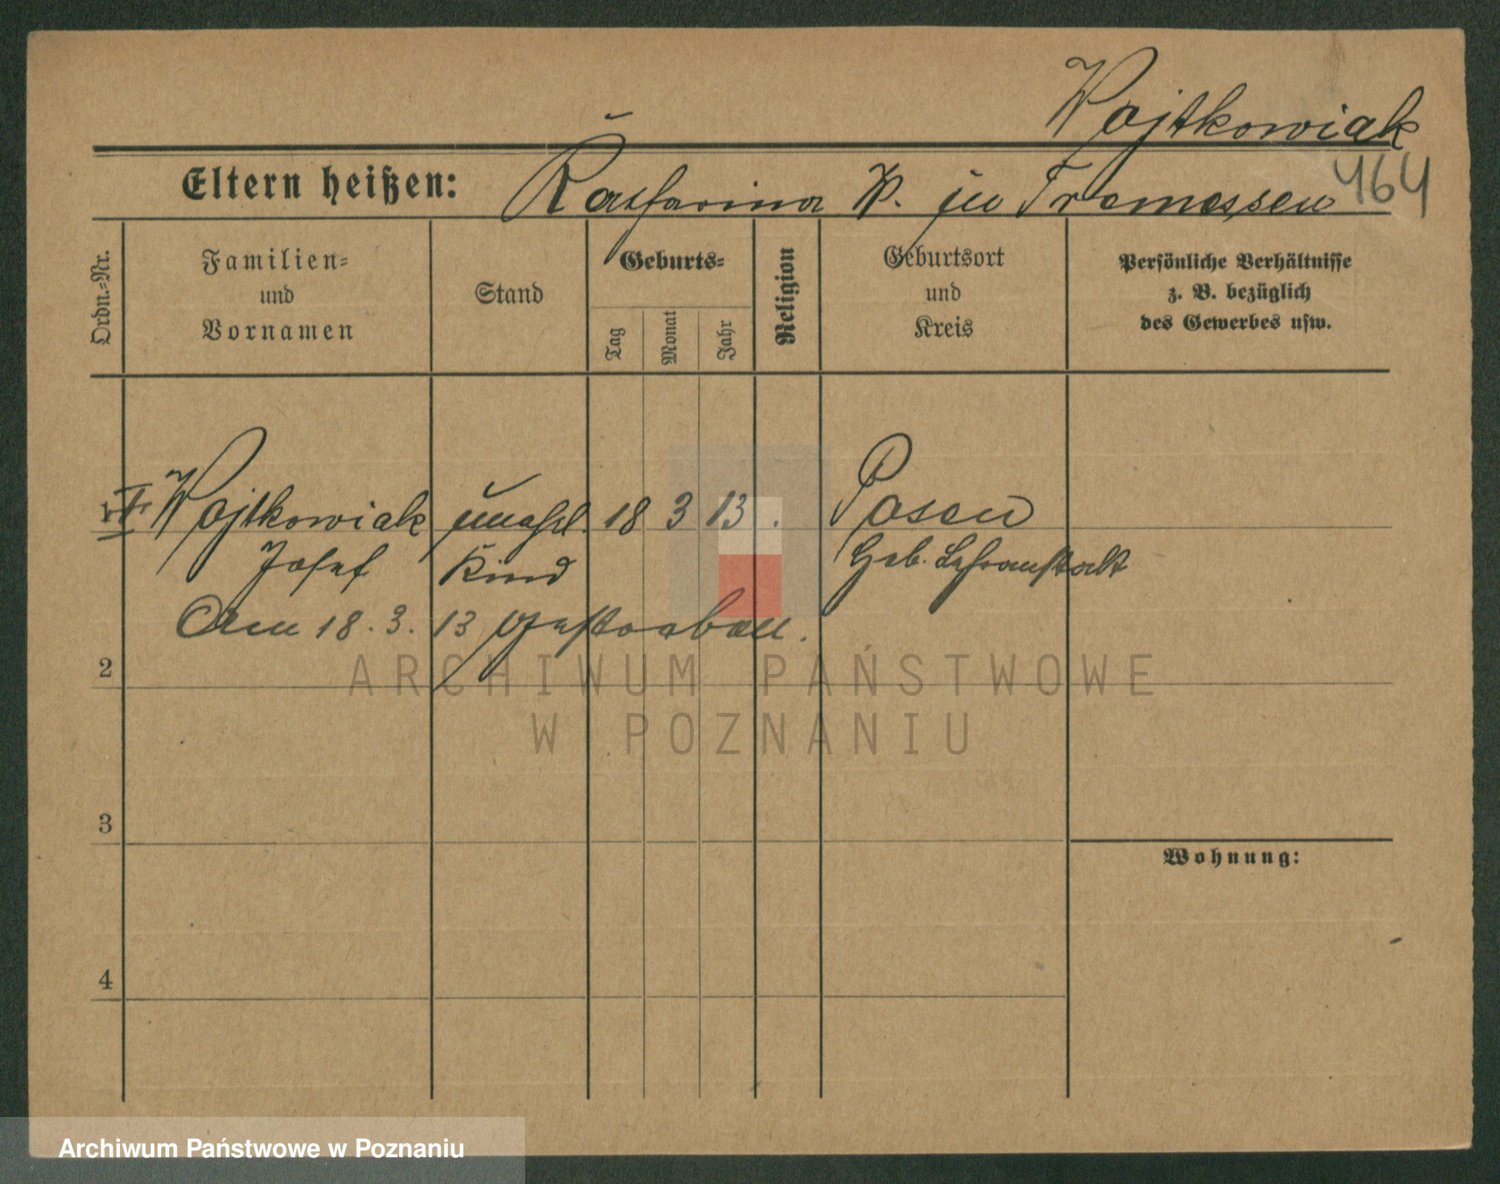 Wojtkowiak
464
Eltern heißen: Katharina W. in Tremessen
Ordn.-Nr.
Familien- und Vornamen
Stand
Geburts-
Tag
Monat
Jahr
Religion
Geburtsort und Kreis
Persönliche Verhältnisse z. B. bezüglich des Gewerbes usw.
1 Wojtkowiak unehel. 18 3 13. Posen
Josef Kind Heb. Lehranstalt
Am 18. 3. 13 gestorben.
2
3
Wohnung:
4
ARCHIWUM PAŃSTWOWE
W POZNANIU
Archiwum Państwowe w Poznaniu